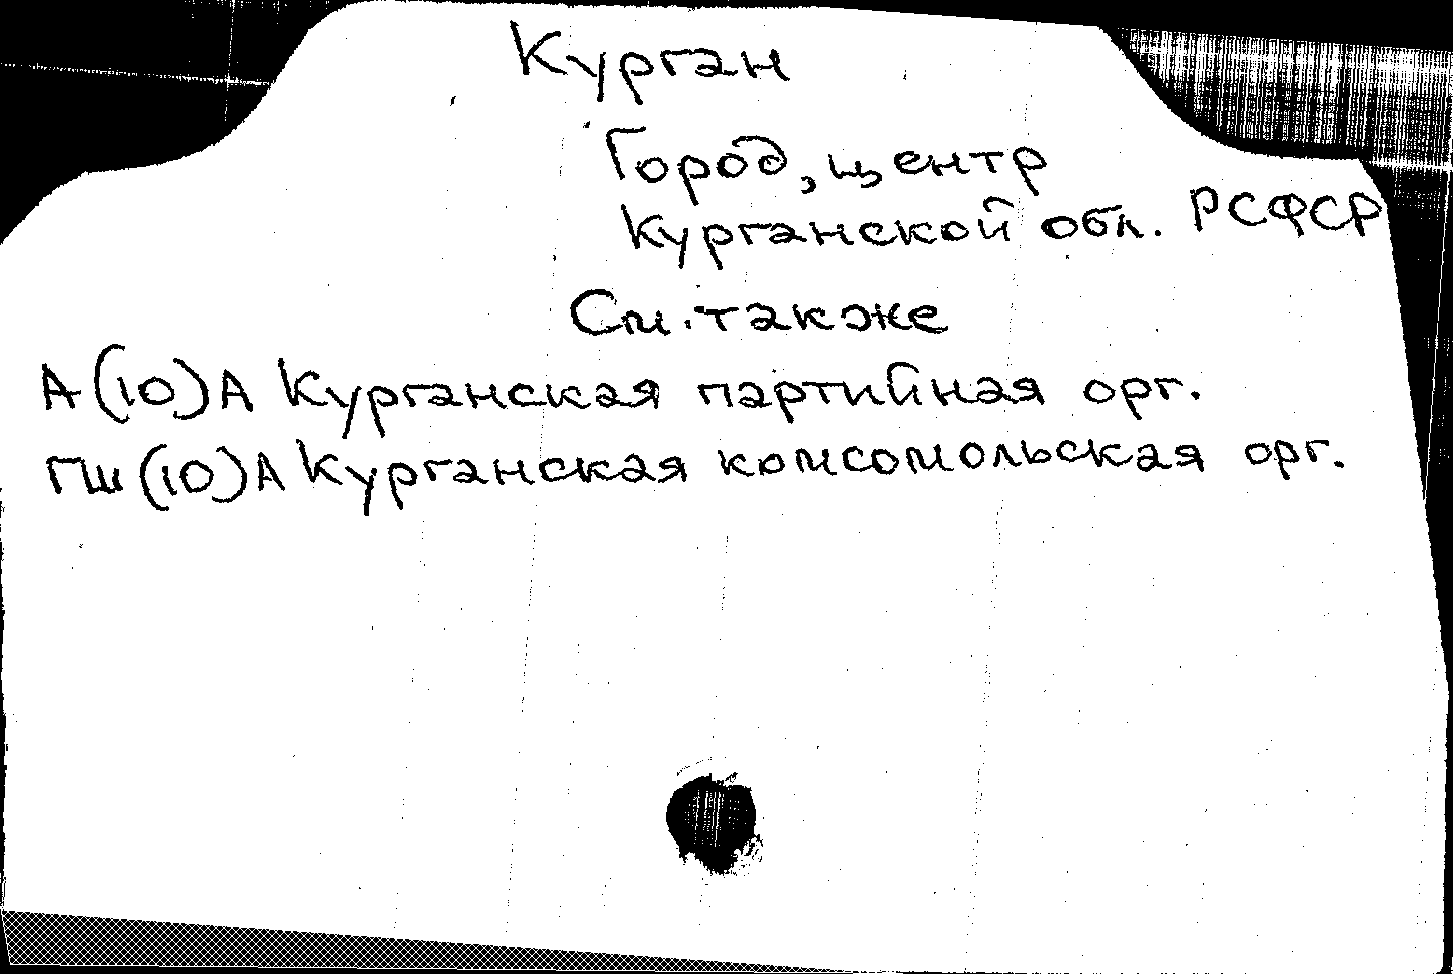 Курган
Город, центр
Курганской обл. РСФСР
См. также
А(10)А Курганская партийная орг.
ГШ(10)А Курганская комсомольская орг.